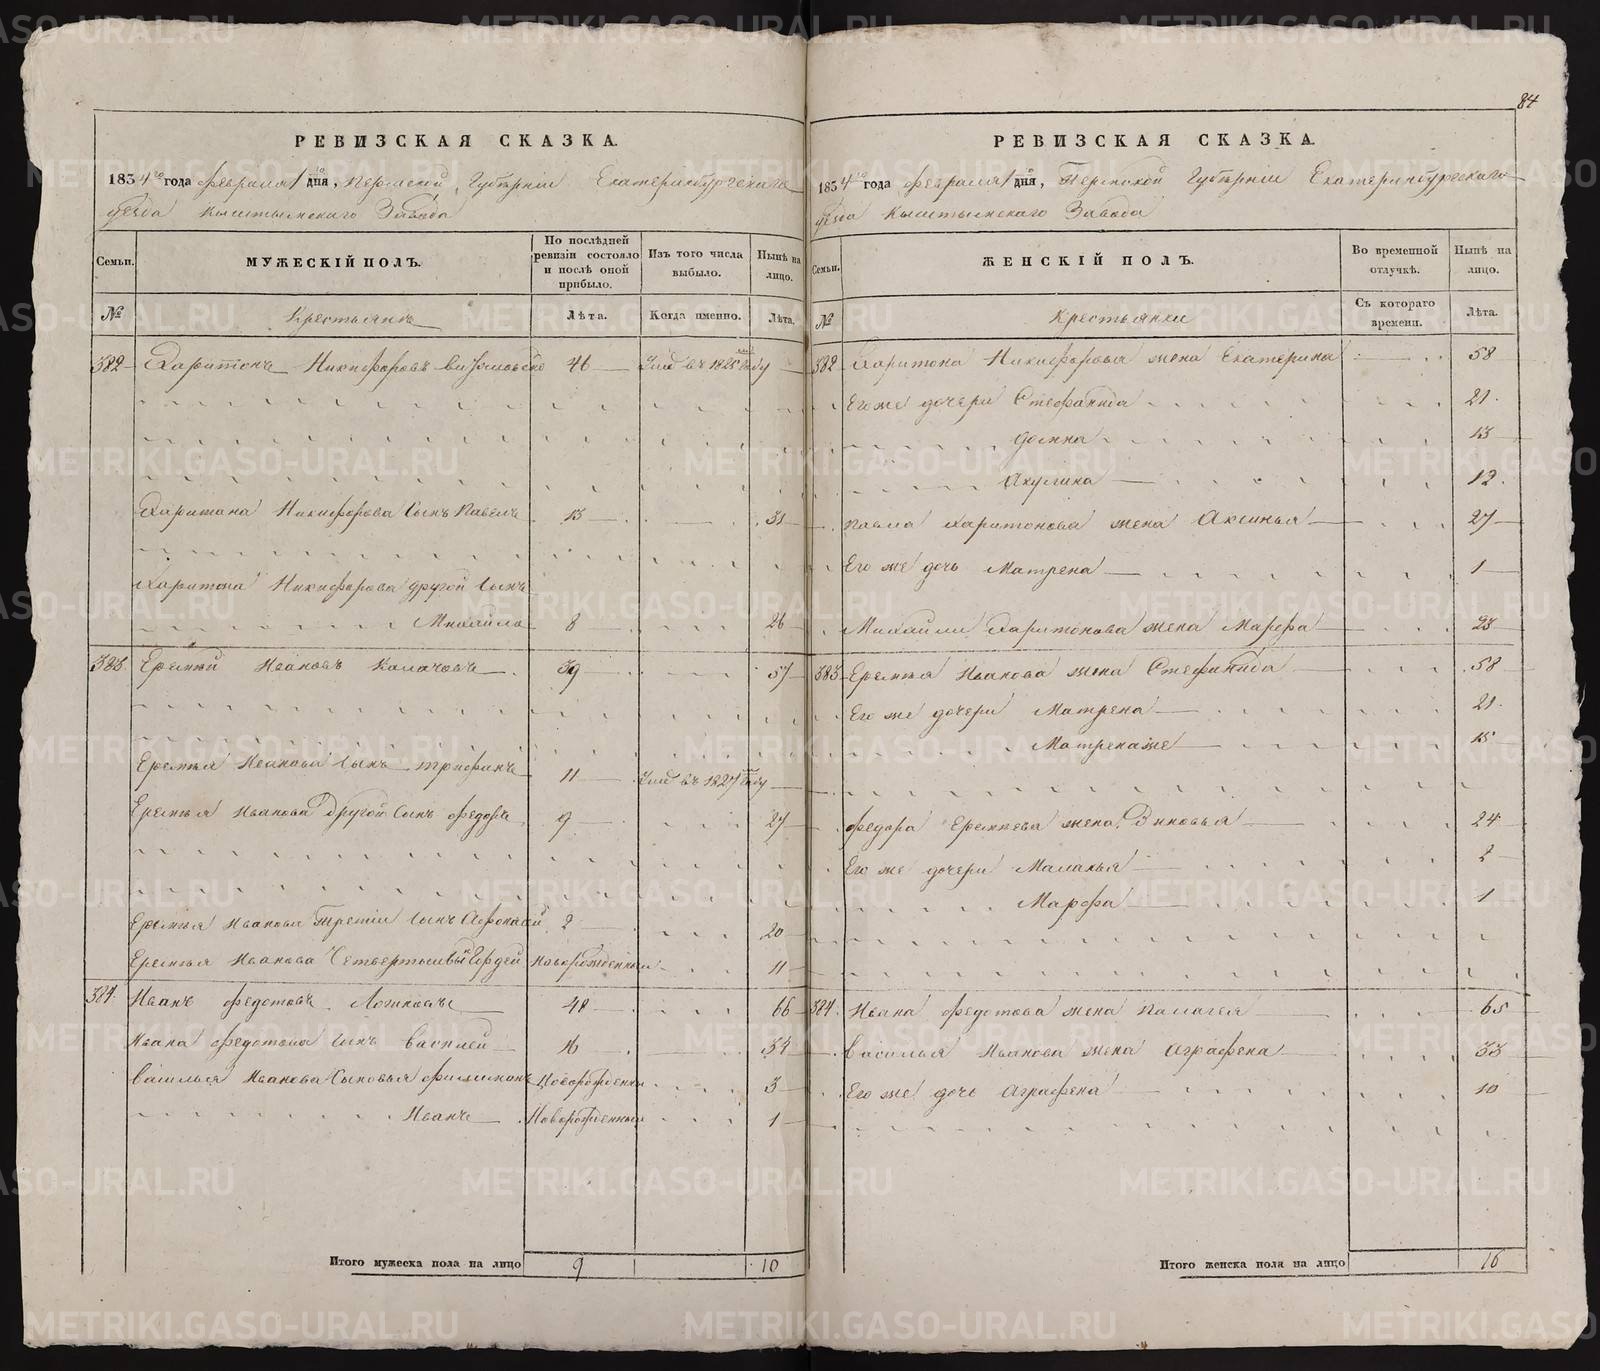 84
РЕВИЗСКАЯ СКАЗКА.
1834го года февраля 1 дня, Пермской Губерніи Екатеринбургскаго
уезда Кыштымскаго Завода
Семьи.
МУЖЕСКІЙ ПОЛЪ.
По послѣдней ревизіи состояло и послѣ оной прибыло.
Изъ того числа выбыло.
Нынѣ на лицо.
№
Крестьянъ
Лѣта.
Когда именно.
Лѣта.
382 Харитонъ Никифоровъ 46 Умр въ 1825 году
Харитона Никифорова сынъ Павелъ 13 31
Харитона Никифорова другой сынъ
Михайло 8 26
383 Еремей Ивановъ Калачовъ 39 57
Еремея Иванова сынъ Трифанъ 11 Умр въ 1827 году
Еремея Иванова другой сынъ Федоръ 9 27
Еремея Иванова третіи сынъ Афонасей 2 20
Еремея Иванова Четвертый сынъ Гордей Новорожденный 11
384 Иванъ Федотовъ Логиновъ 48 66
Ивана Федотова сынъ Василей 16 34
Василья Иванова сыновья Филимонъ Новорожденны 3
Иванъ Новорожденный 1
Итого мужеска пола на лицо 9 10
РЕВИЗСКАЯ СКАЗКА.
1834го года февраля 1 дня, Пермской Губерніи Екатеринбургскаго
уезда Кыштымскаго Завода
Семьи.
ЖЕНСКІЙ ПОЛЪ.
Во временной отлучкѣ.
Нынѣ на лицо.
№
Крестьянки
Съ котораго времени.
Лѣта.
382 Харитона Никифорова жена Екатерина 58
Его же дочери Стефанида 21
Домна 13
Акулина 12
Павла Харитонова жена Аксинья 27
Его же дочь Матрена 1
Михайли Харитонова жена Марфа 23
383 Еремея Иванова жена Стефанида 58
Его же дочери Матрена 21
Матрена же 15
Федора Еремеева жена Зиновья 24
Его же дочери Маланья 2
Марфа 1
384 Ивана Федотова жена Палагея 65
Василья Иванова жена Аграфена 33
Его же дочь Аграфена 10
Итого женска пола на лицо 16
METRIKI.GASO-URAL.RU